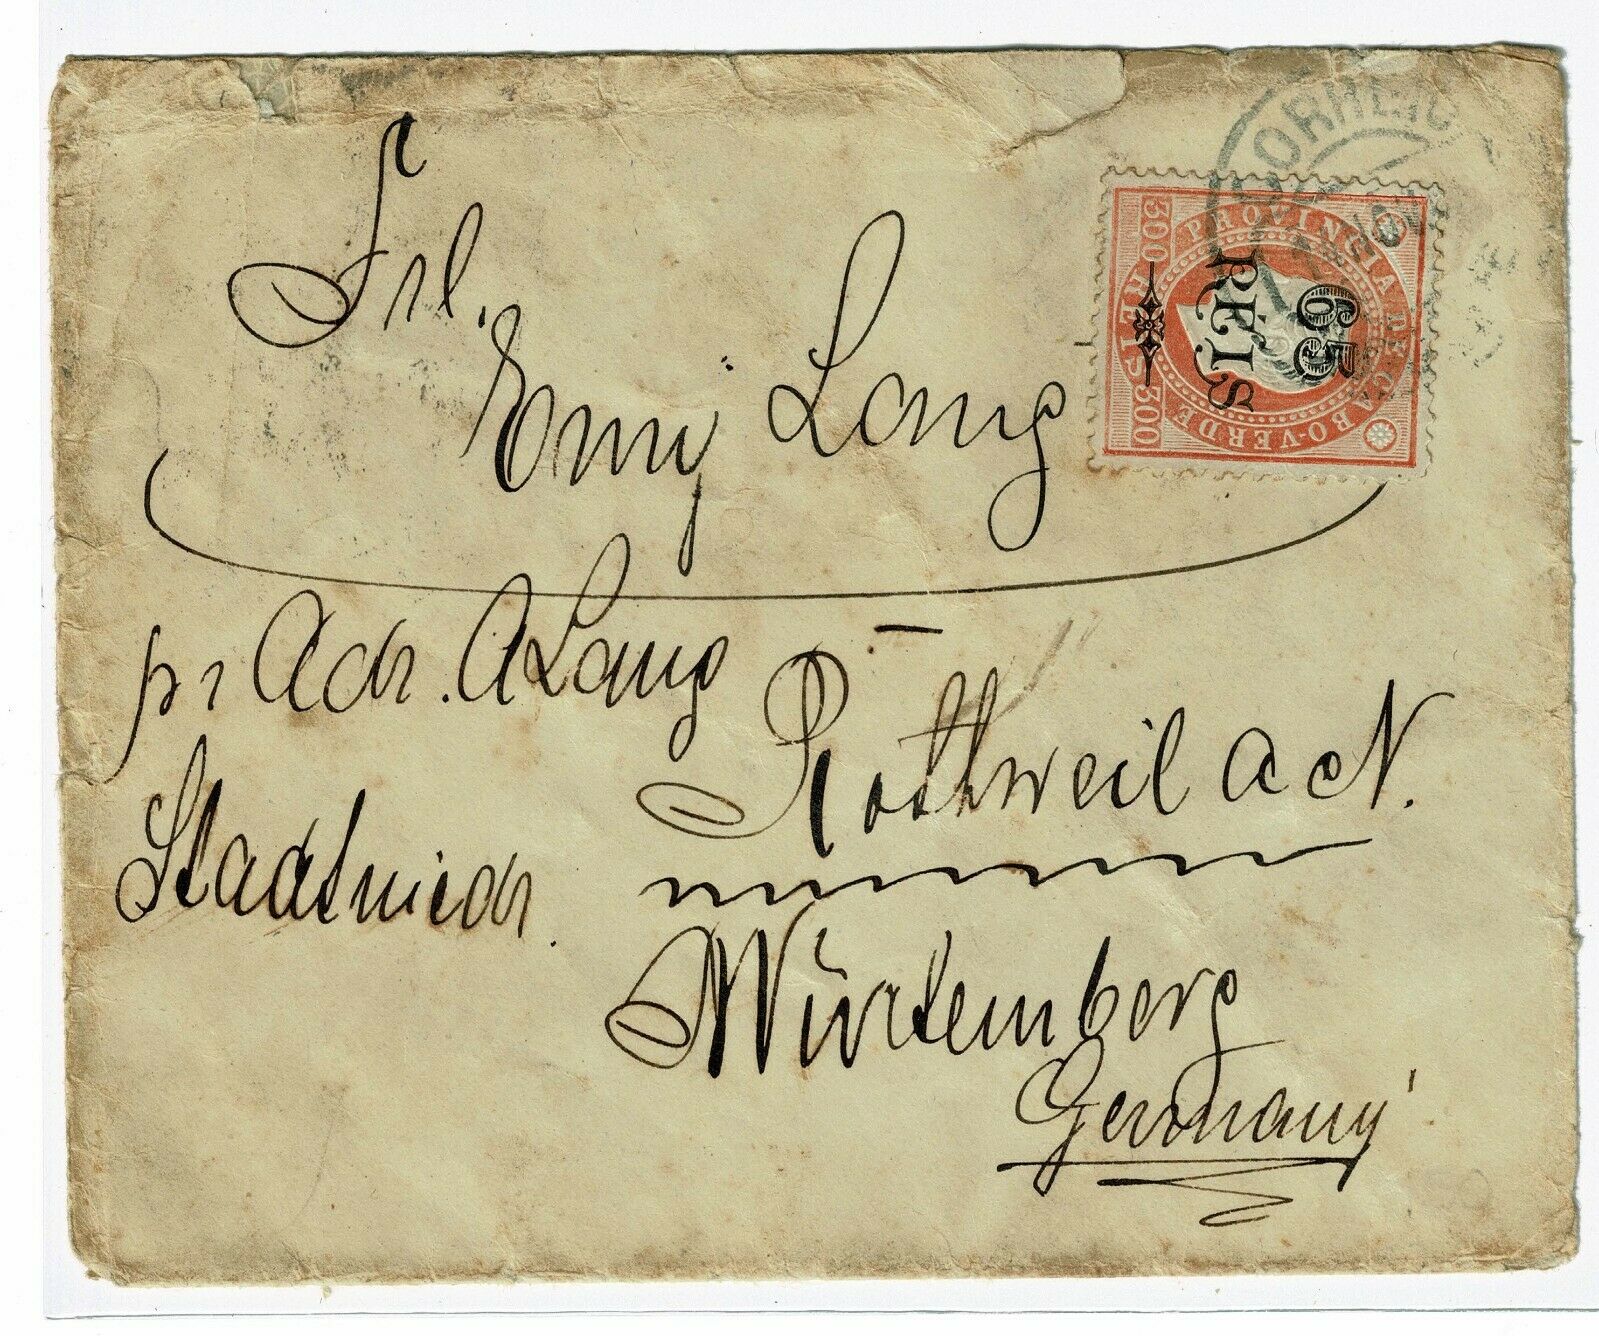 CORREIO
PROVINCIA DE CABO-VERDE
300 REIS 300
65
RÉIS
Frl.
Emy Lang
pr Adr. A Lang
Rottweil a N.
Stadtniedr.
Würtemberg
Germany